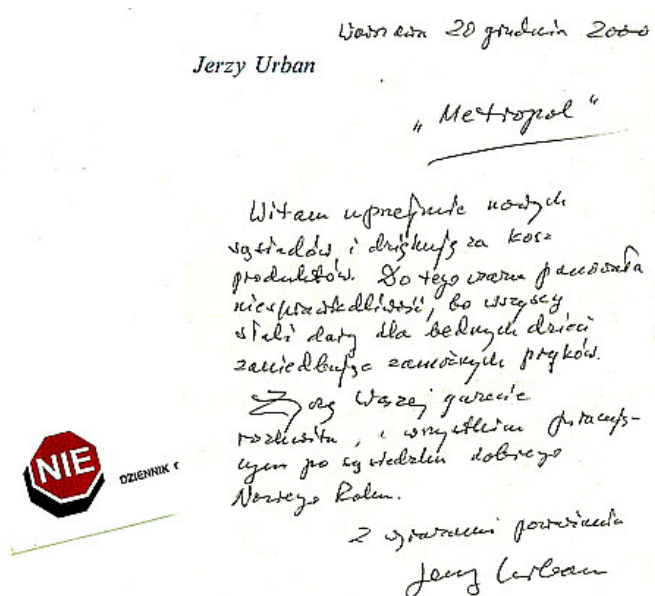 Warszawa 20 grudnia 2000
Jerzy Urban
„Metropol"
Witam uprzejmie nowych
sąsiadów i dziękuję za kosz
produktów. Do tego czasu panowała
niesprawiedliwość, bo wszyscy
słali dary dla biednych dzieci
zaniedbując zamożnych pryków.
Życzę Waszej gazecie
rozkwitu, a wszystkim pracują-
cym po sąsiedzku dobrego
Nowego Roku.
NIE
DZIENNIK
Z wyrazami poważania
Jerzy Urban